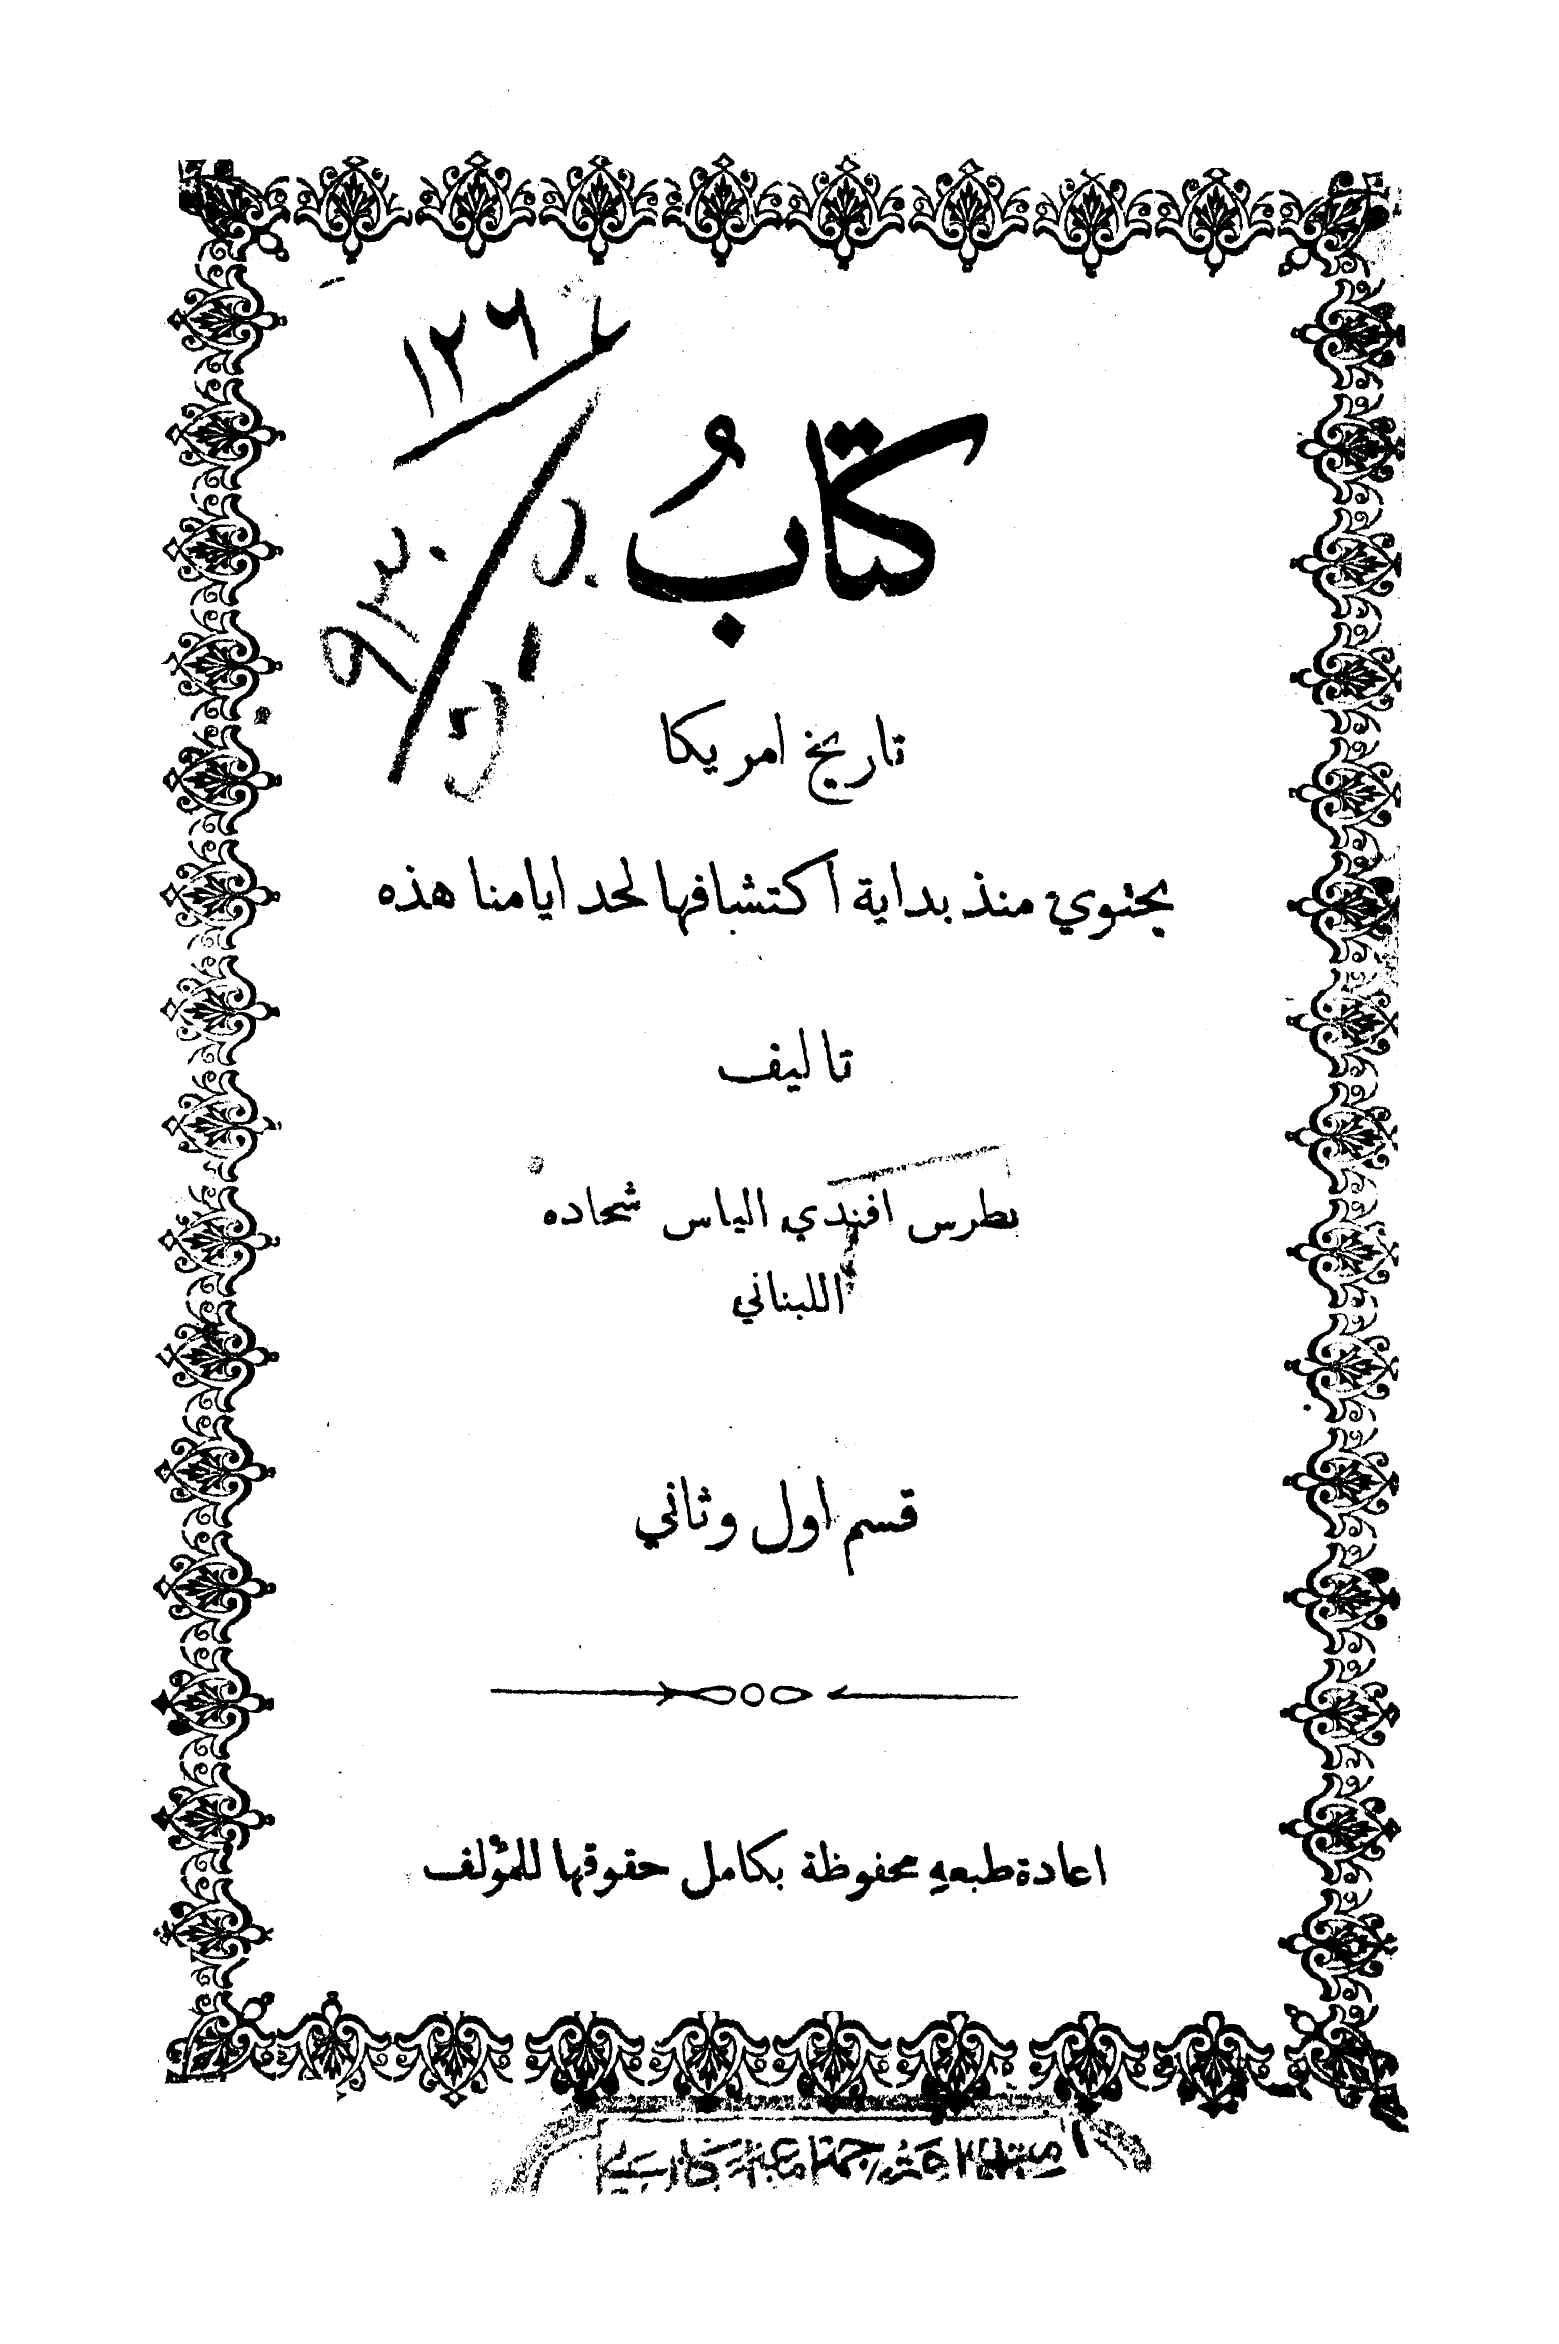 ١٢٦
٩٣٠
كتابُ
تاريخ امريكا
يحتوي منذ بداية اكتشافها لحد ايامنا هذه
تاليف
بطرس افندي الياس شحاده
اللبناني
قسم اول وثاني
اعادة طبعهِ محفوظة بكامل حقوقها للمؤلف